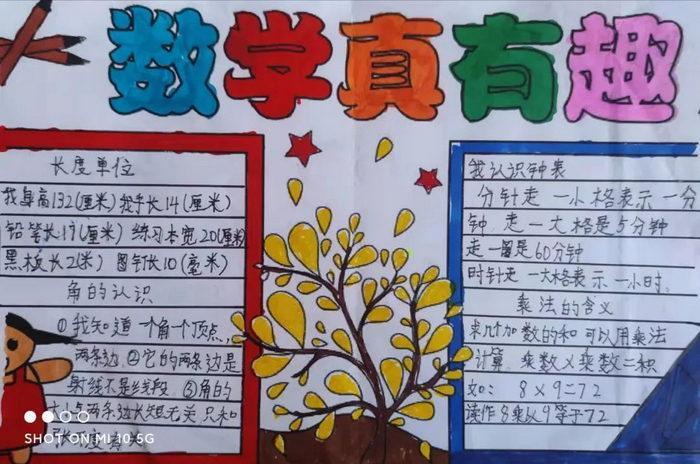 数学真有趣
长度单位
我身高132(厘米) 我手长14(厘米)
铅笔长17(厘米) 练习本宽20(厘米)
黑板长2(米) 图钉长10(毫米)
角的认识
①我知道一个角一个顶点,
两条边.②它的两条边是
射线不是线段.③角的
大小与两条边长短无关 只和
我认识钟表
分针走一小格表示一分
钟,走一大格是5分钟
走一圈是60分钟
时针走一大格表示一小时.
乘法的含义
求几个加数的和可以用乘法
计算.乘数×乘数=积
如: 8×9=72
读作8乘以9等于72
SHOT ON MI 10 5G